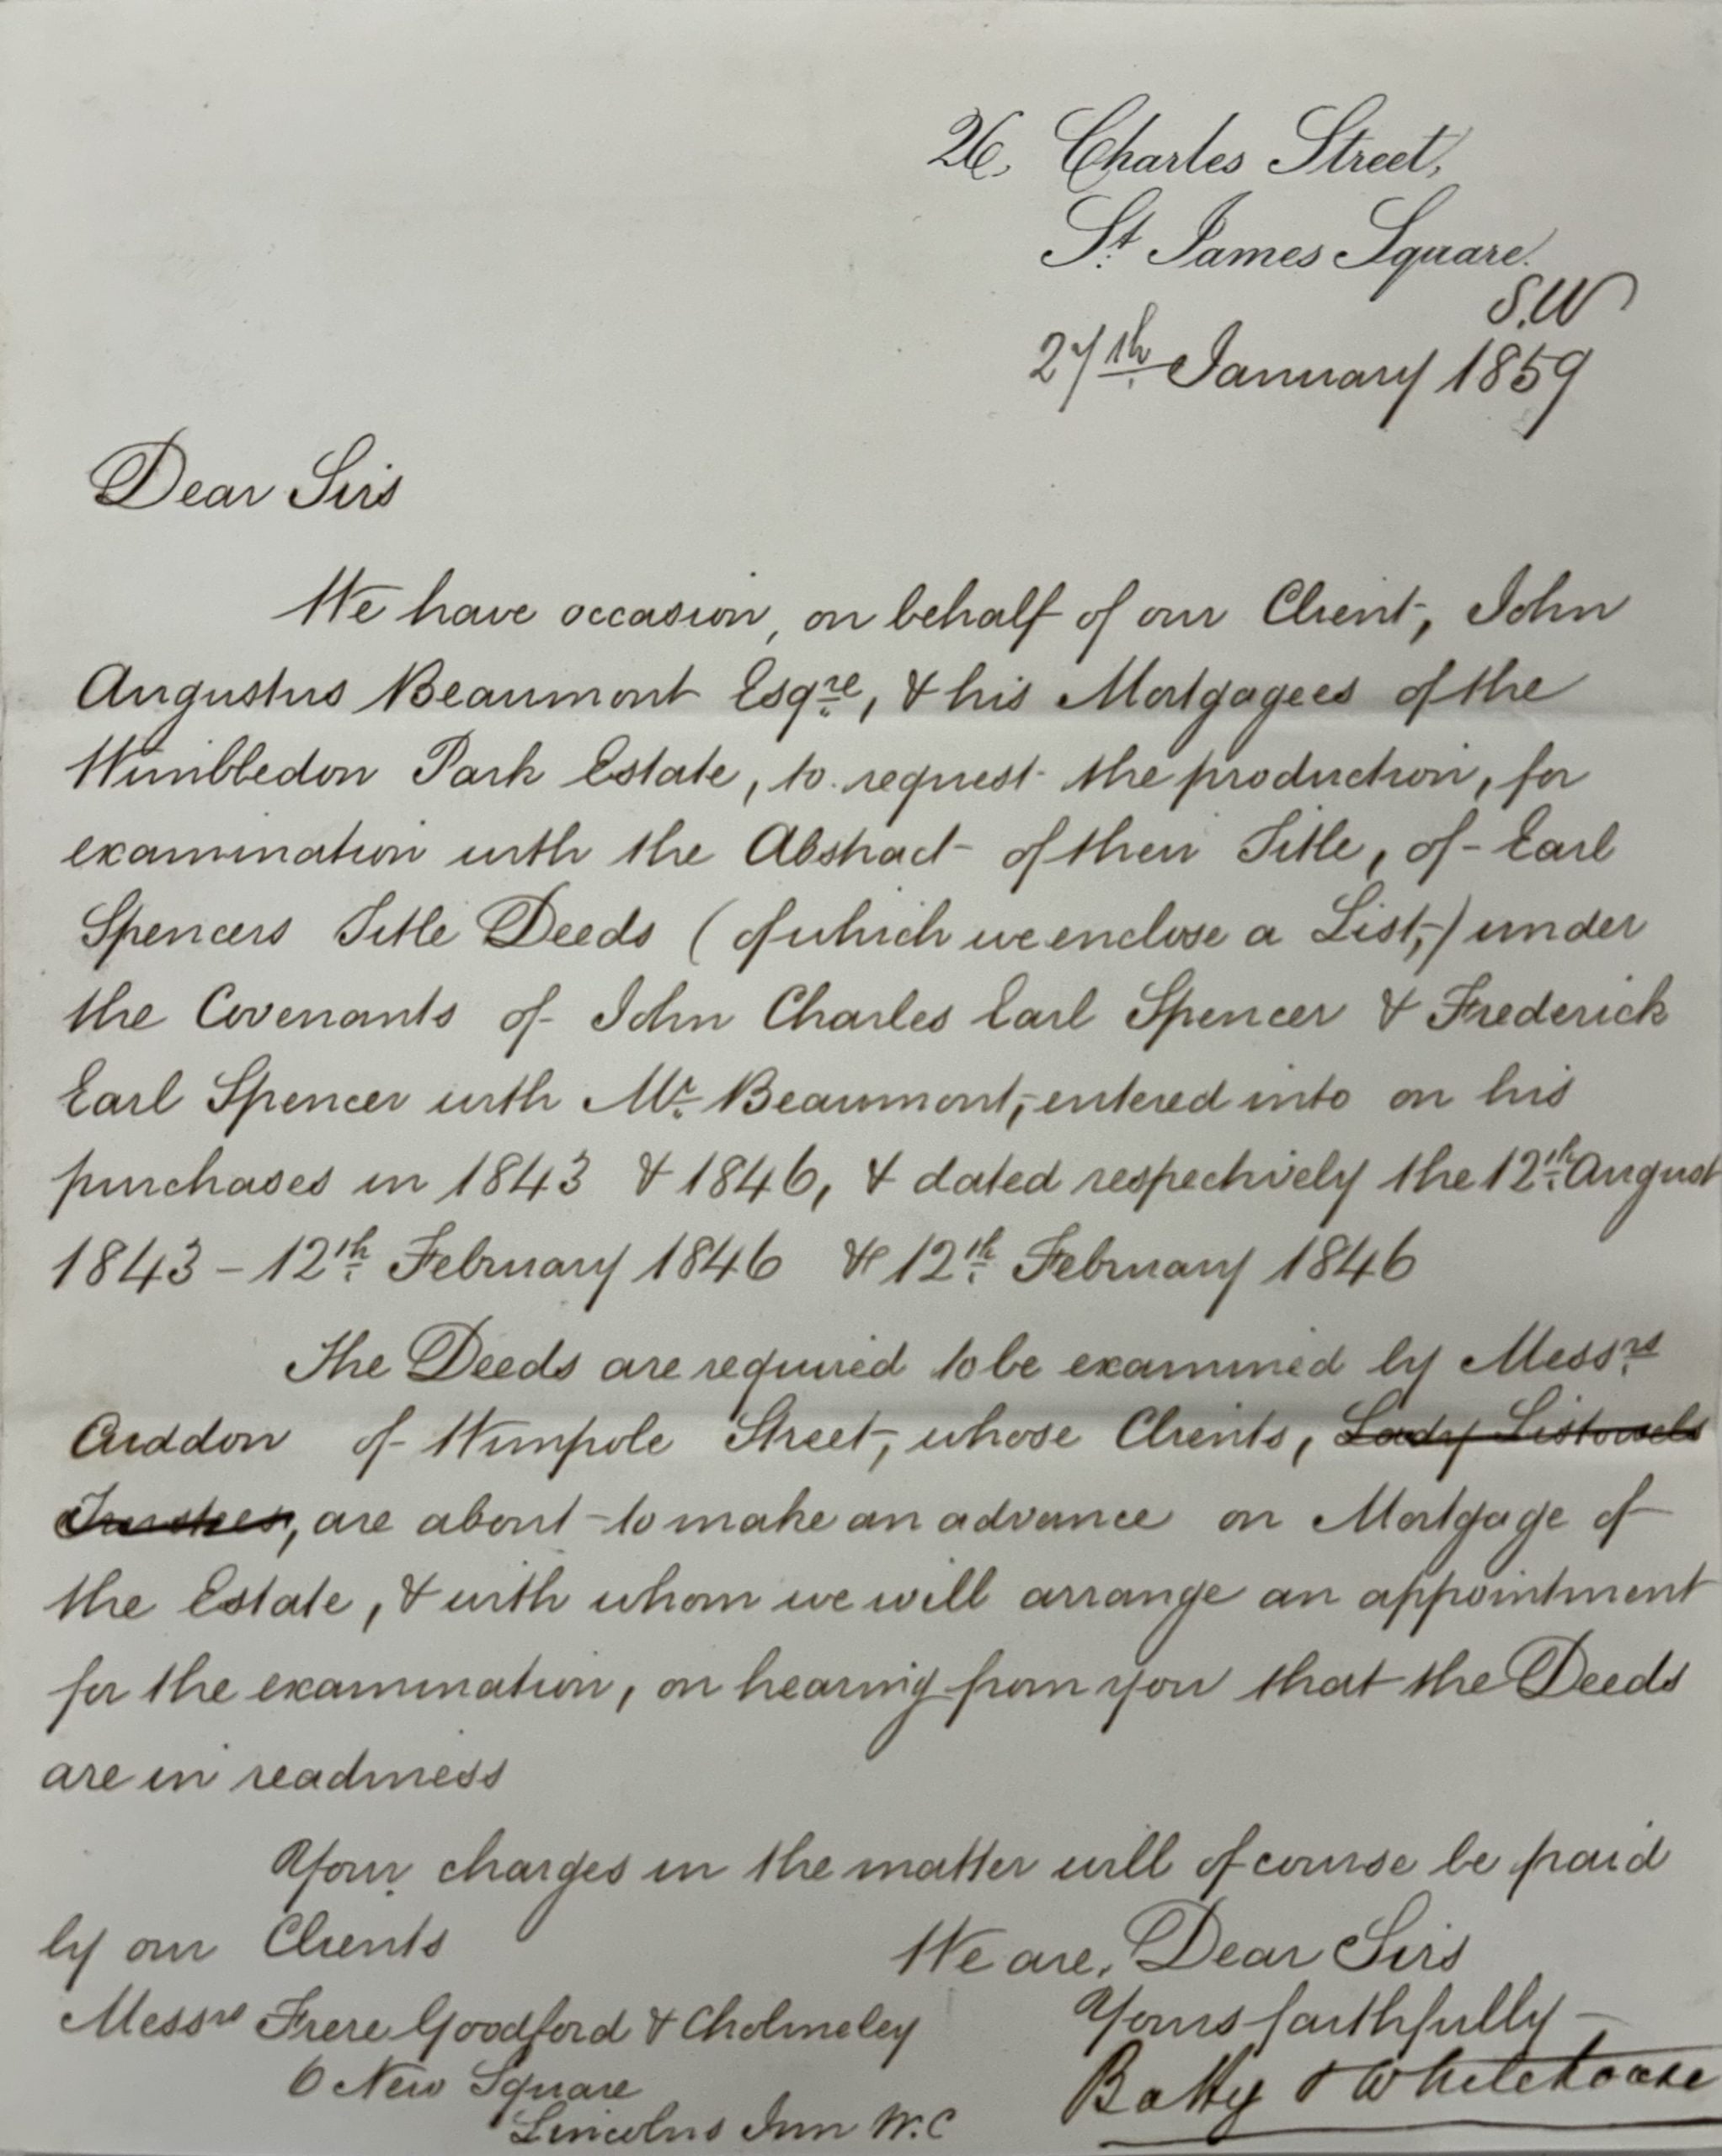 26, Charles Street,
St. James Square.
S.W
27th January 1859
Dear Sirs
We have occasion, on behalf of our Client, John
Augustus Beaumont Esqre, & his Mortgagees of the
Wimbledon Park Estate, to request the production, for
examination with the Abstract of their Title, of Earl
Spencers Title Deeds (of which we enclose a List,) under
the Covenants of John Charles Earl Spencer & Frederick
Earl Spencer with Mr. Beaumont, entered into on his
purchases in 1843 & 1846, & dated respectively the 12th August
1843 - 12th February 1846 & 12th February 1846
The Deeds are required to be examined by Messrs
Cuddon of Wimpole Street, whose Clients, Lady Listowels
Trustees, are about to make an advance on Mortgage of
the Estate, & with whom we will arrange an appointment
for the examination, on hearing from you that the Deeds
are in readiness
Your charges in the matter will of course be paid
by our Clients
We are, Dear Sirs
Yours faithfully
Batty & Whitehouse
Messrs Frere Goodford & Cholmeley
6 New Square
Lincolns Inn W.C